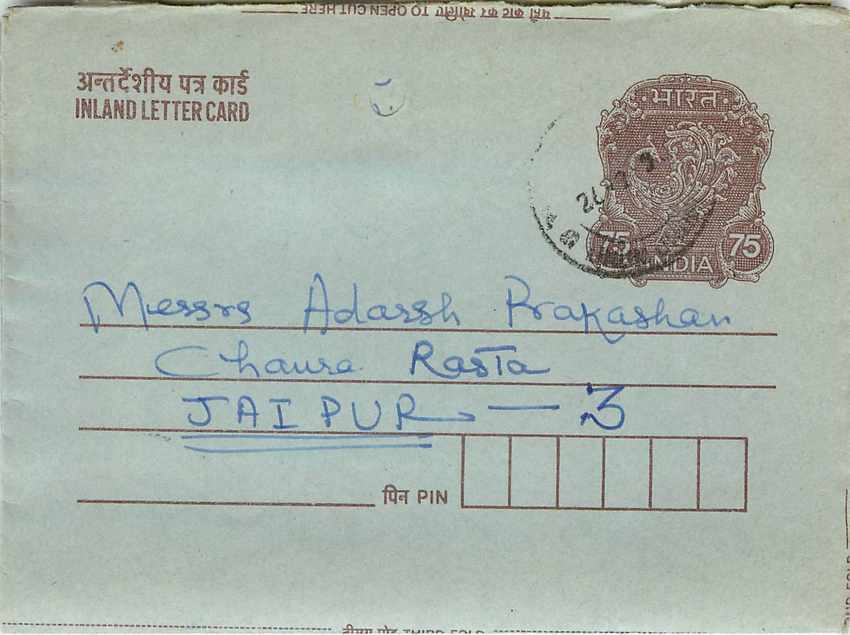 यहाँ काट कर खोलिए TO OPEN CUT HERE
अन्तर्देशीय पत्र कार्ड
INLAND LETTER CARD
भारत
75 75
INDIA
Messrs Adarsh Prakashan
Chaura Rasta
JAIPUR - 3
पिन PIN
तीसरा मोड़ THIRD FOLD